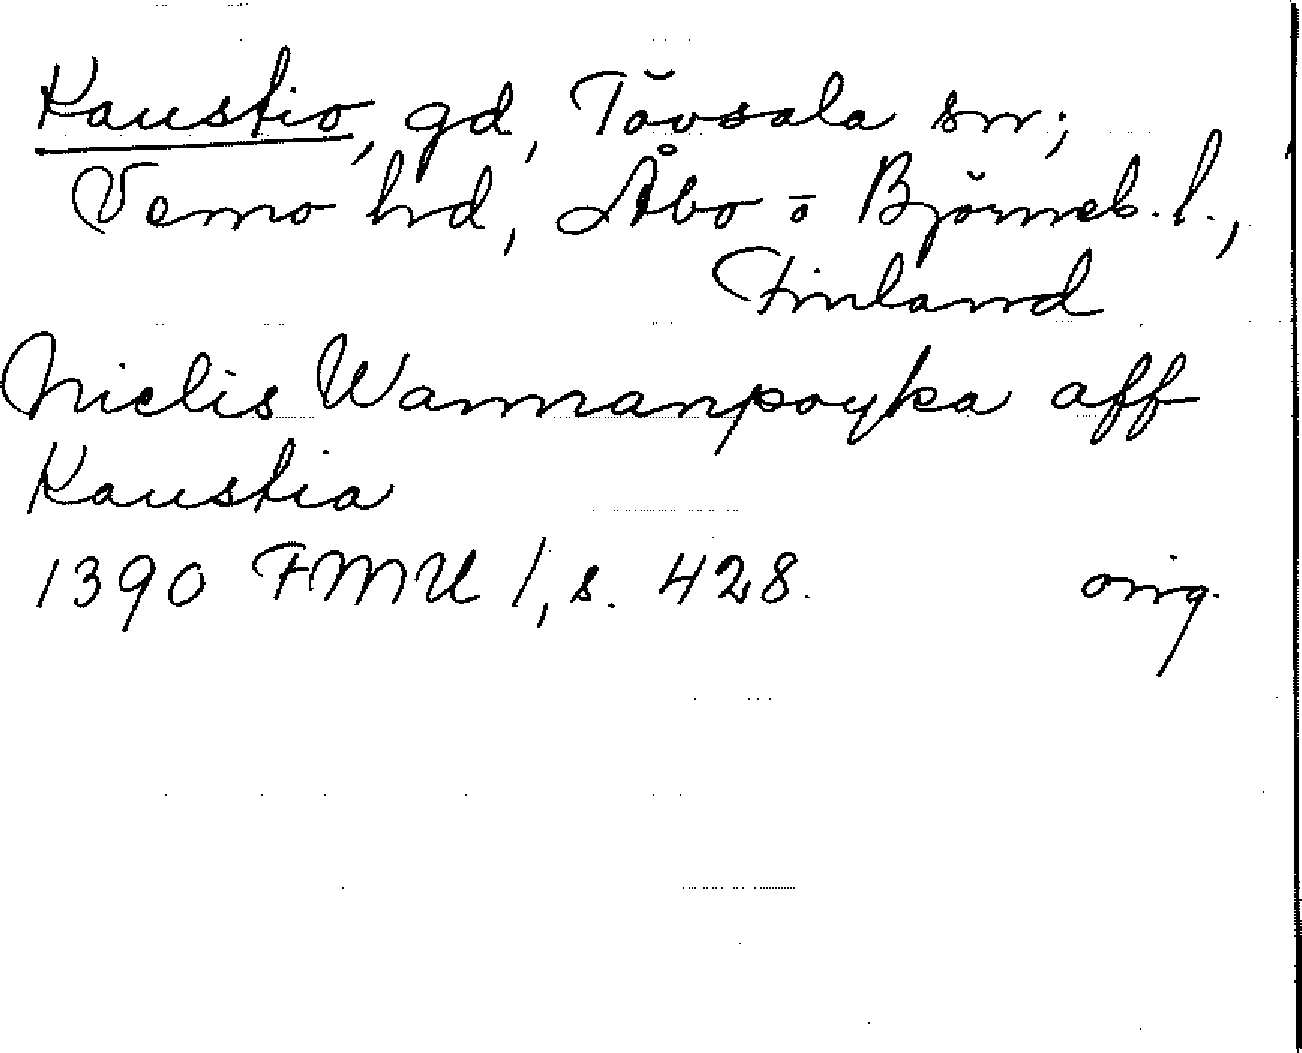 Kaustio, gd, Tövsala sn;
Vemo hd, Åbo o Björneb. l.,
Finland
Nielis Wanmanpoyka aff
Kaustia
1390 FMU 1, s. 428. orig.